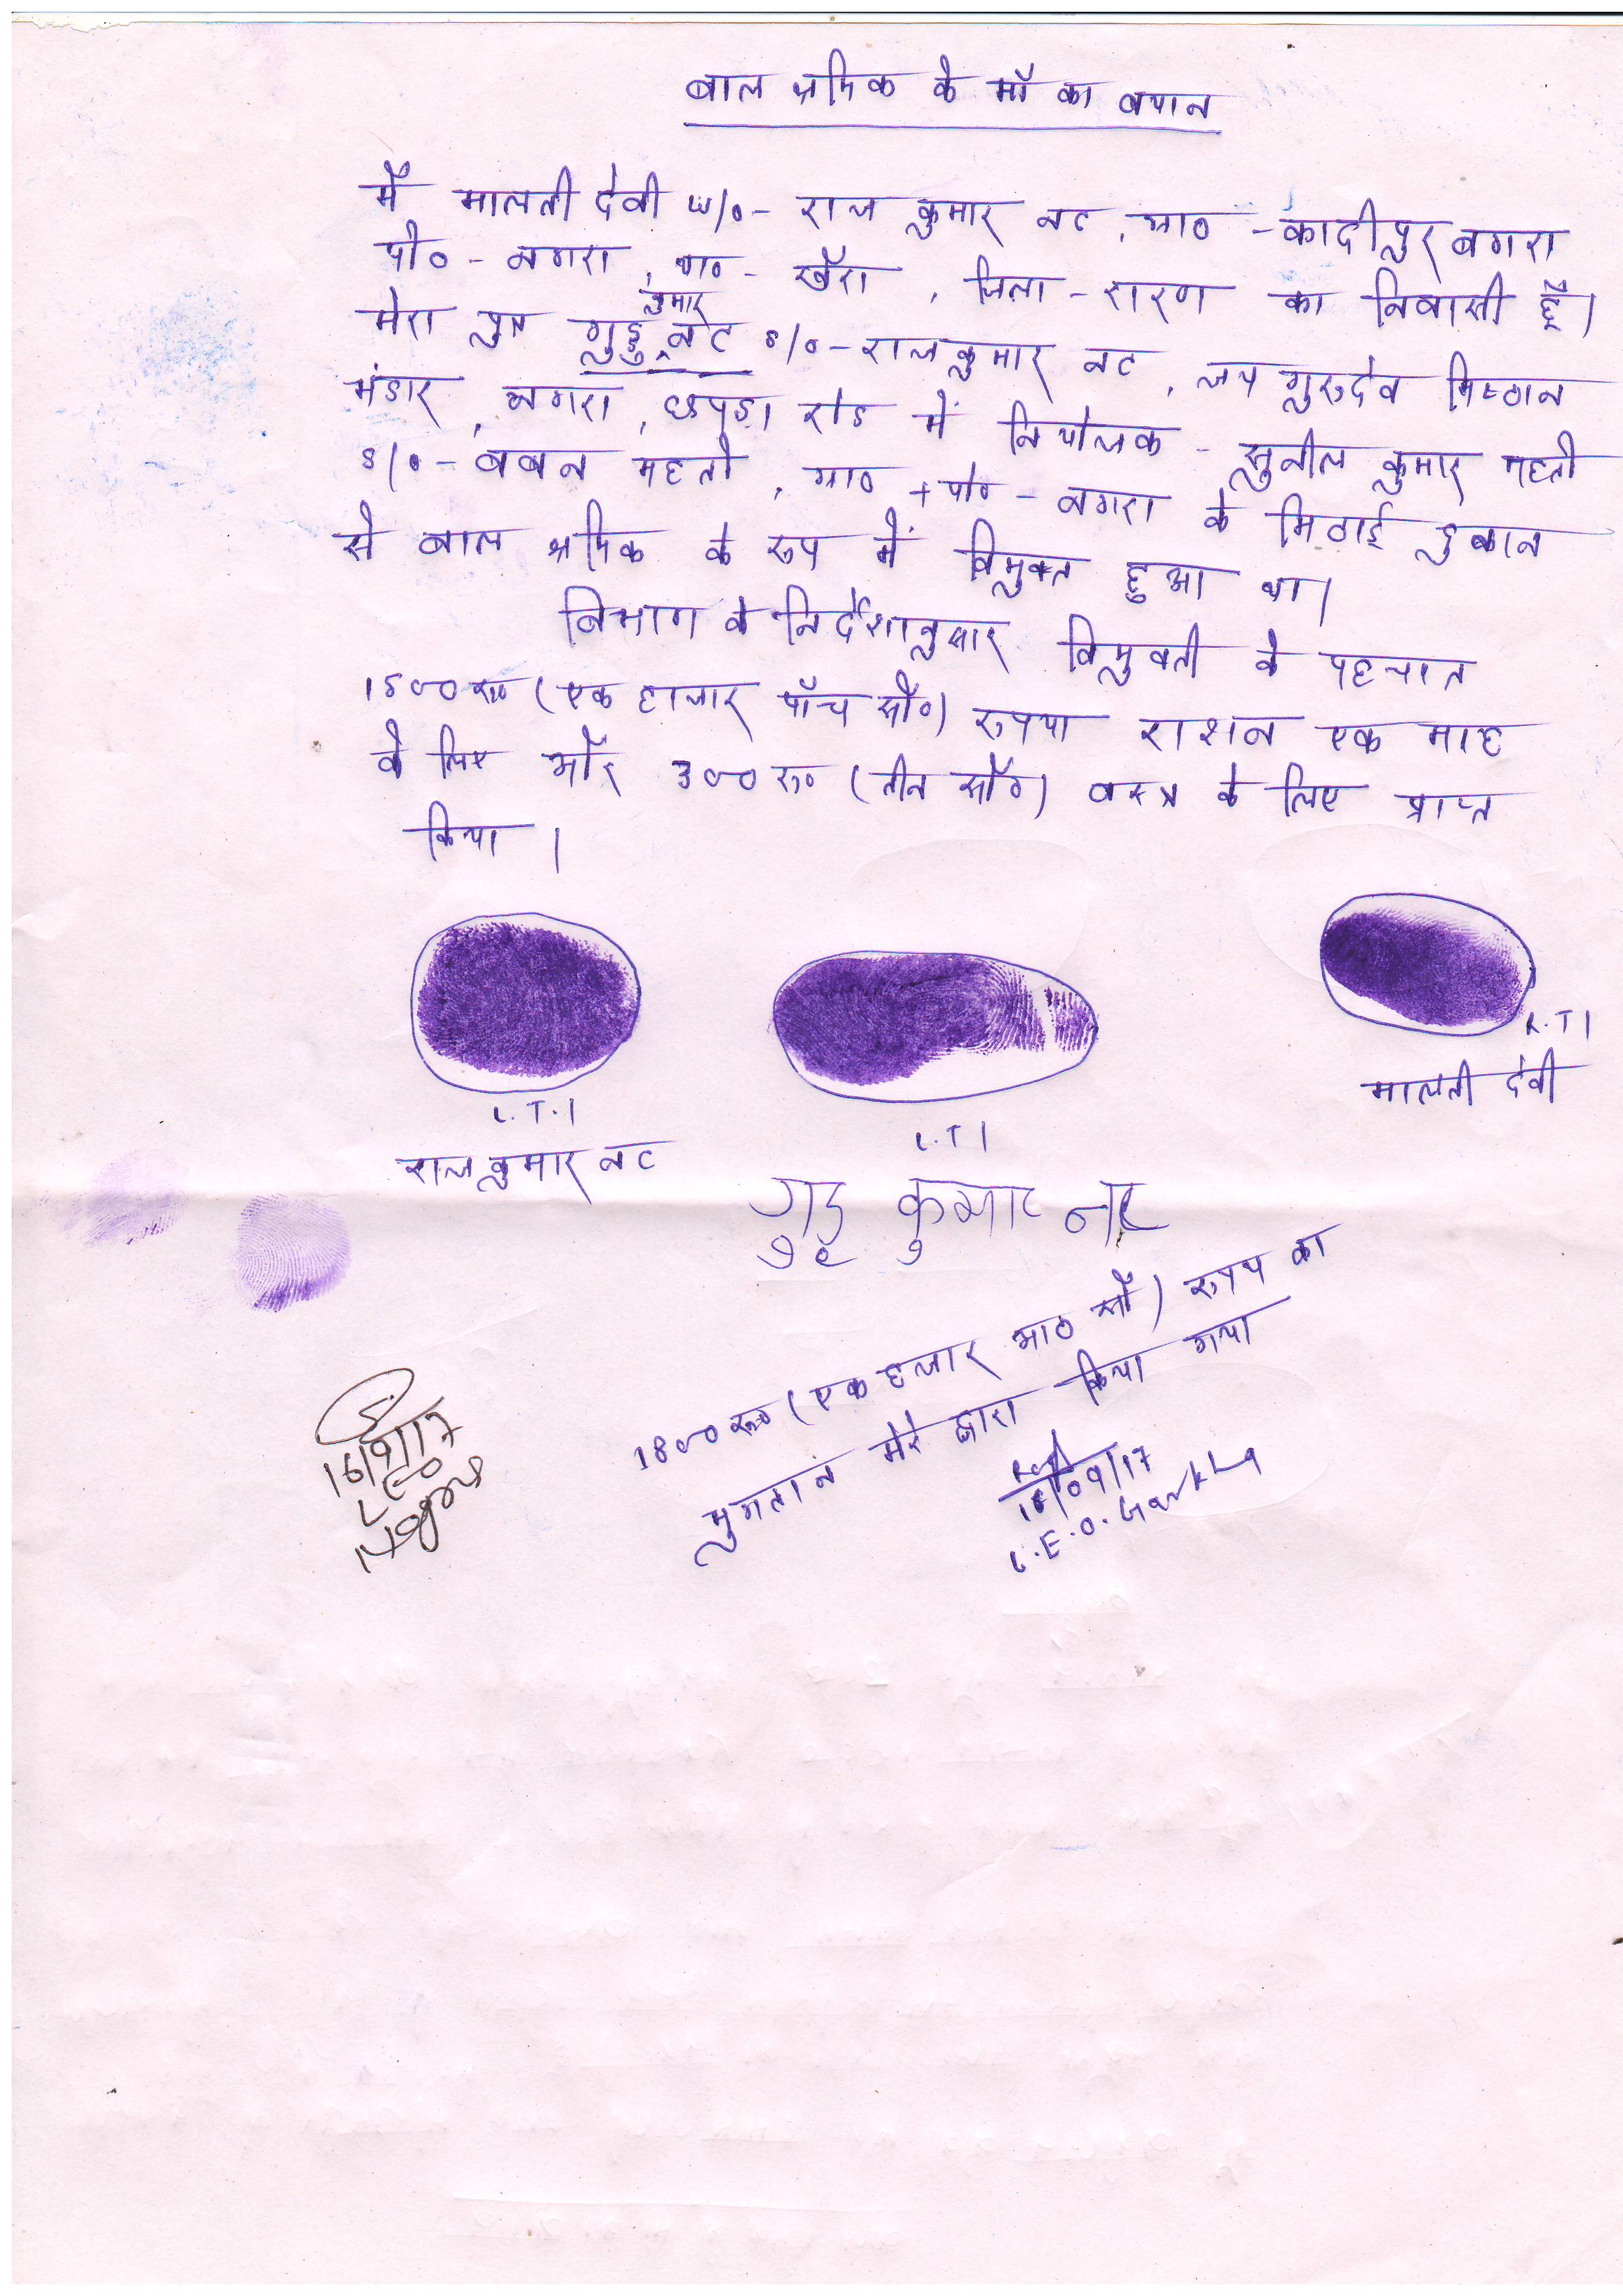 बाल श्रमिक के माँ का बयान
मैं मालती देवी W/o- राज कुमार नट, ग्रा० - कादीपुर नगरा
पो० - नगरा, था० - खैरा, जिला - सारण का निवासी हूँ।
मेरा पुत्र गुड्डु कुमार नट S/o- राजकुमार नट, जय गुरुदेव मिष्ठान
भंडार, नगरा, छपड़ा रोड में नियोजक - सुनील कुमार महतो
S/o- बबन महतो, ग्रा० + पो० - नगरा के मिठाई दुकान
से बाल श्रमिक के रूप में विमुक्त हुआ था।
विभाग के निर्देशानुसार विमुक्ती के पहचात
1500 रू० (एक हाजार पाँच सौ०) रुपया राशन एक माह
के लिए और 300 रू० (तीन सौ०) वस्त्र के लिए प्राप्त
किया।
L.T.I
राजकुमार नट
L.T.I
गुड्डू कुमार नट
R.T.I
मालती देवी
1800 रू० (एक हजार आठ सौ) रुपय का
भुगतान मेरे द्वारा किया गया
16/09/17
L.E.O. Garkha
16/9/17